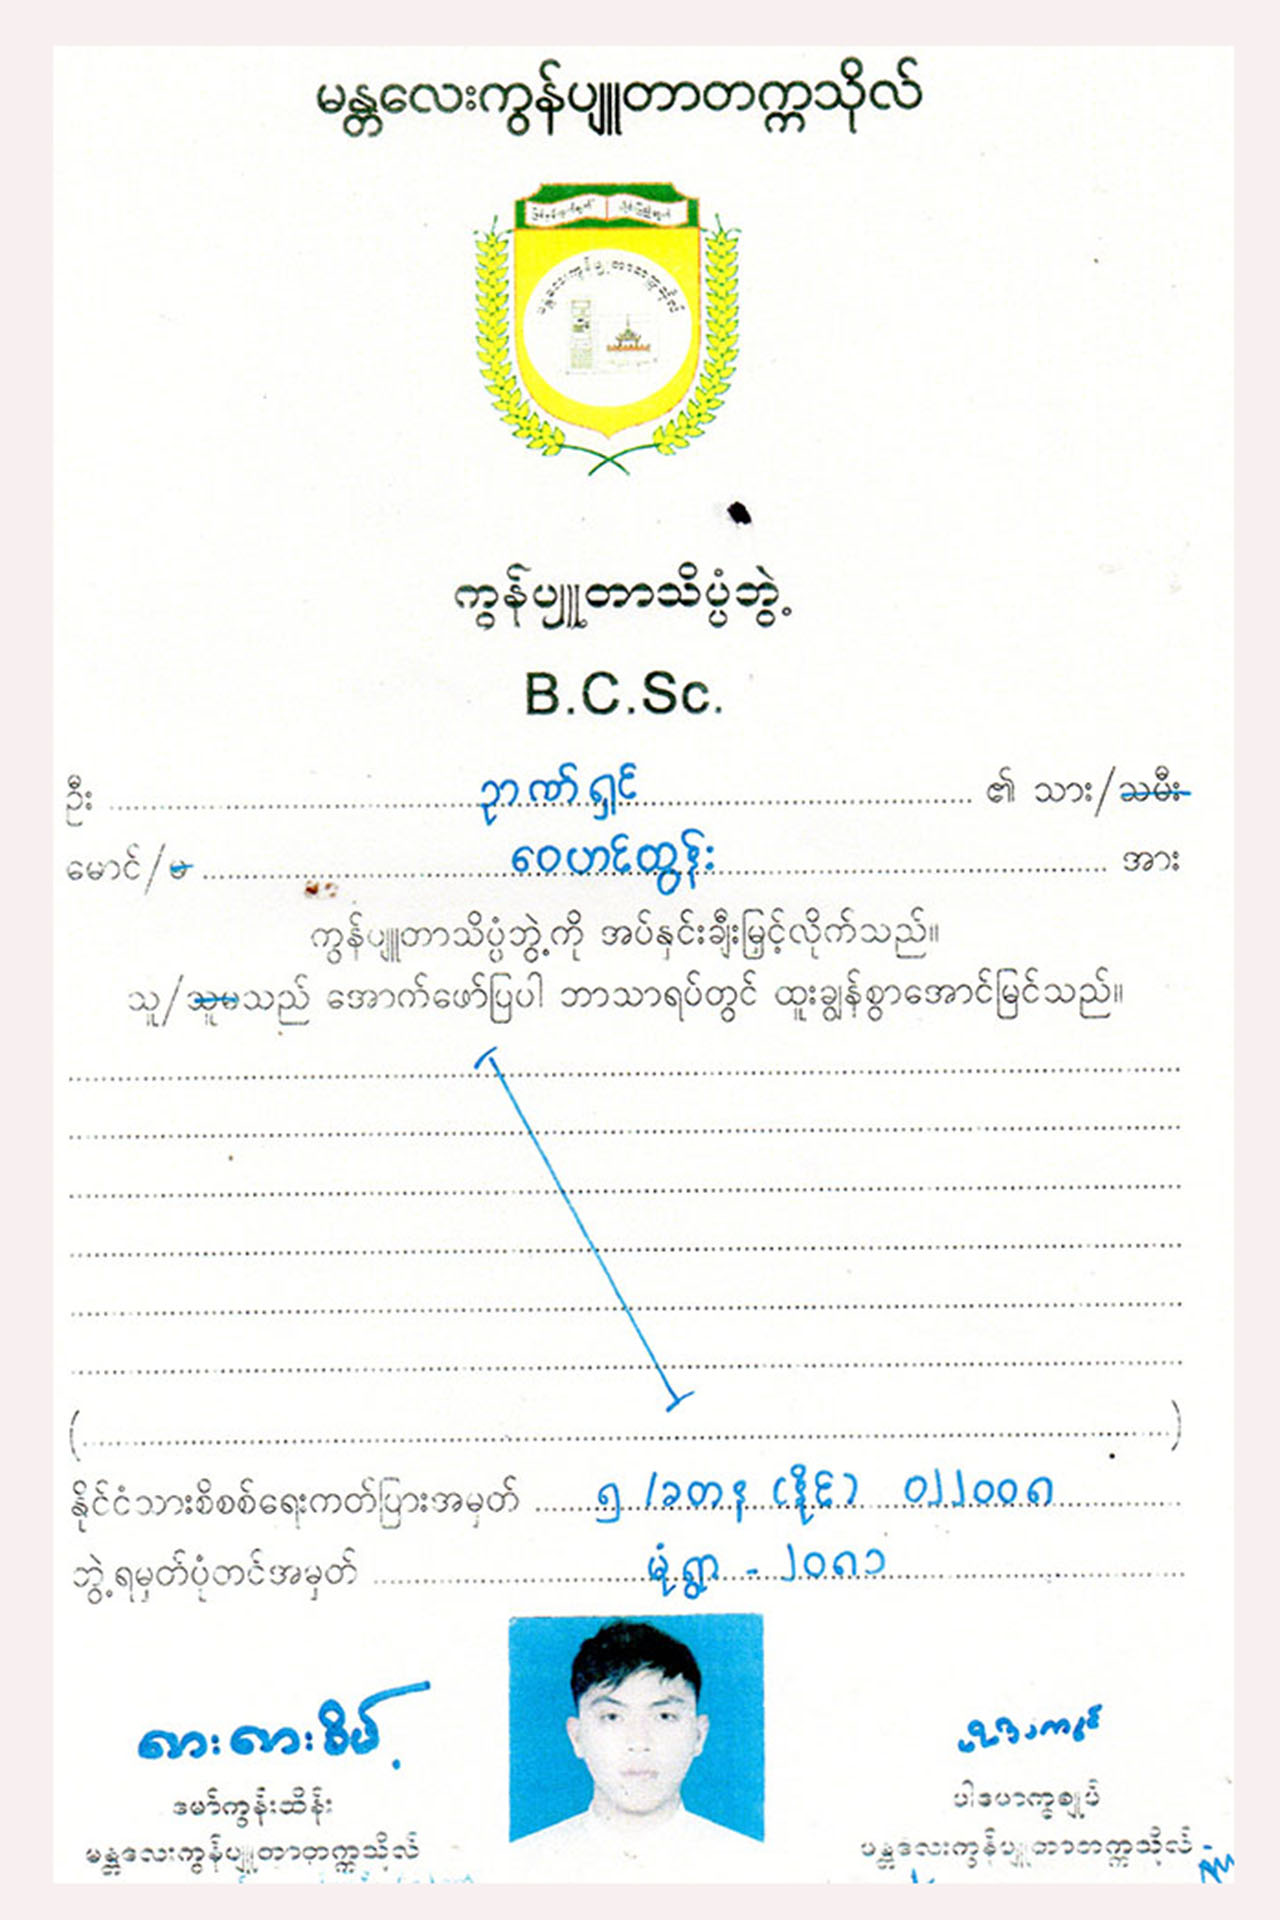 မန္တလေးကွန်ပျူတာတက္ကသိုလ်
မန္တလေးကွန်ပျူတာတက္ကသိုလ်
ကွန်ပျူတာသိပ္ပံဘွဲ့
B.C.Sc.
ဦး ဉာဏ်ရှင် ၏ သား/သမီး
မောင်/မ ဝေဟင်ထွန်း အား
ကွန်ပျူတာသိပ္ပံဘွဲ့ကို အပ်နှင်းချီးမြှင့်လိုက်သည်။
သူ/သူမသည် အောက်ဖော်ပြပါ ဘာသာရပ်တွင် ထူးချွန်စွာအောင်မြင်သည်။
( )
နိုင်ငံသားစိစစ်ရေးကတ်ပြားအမှတ် ၅/ခတန (နိုင်) ၀၂၂၀၀၈
ဘွဲ့ရမှတ်ပုံတင်အမှတ် မုံရွာ - ၂၀၈၁
မော်ကွန်းထိန်း
မန္တလေးကွန်ပျူတာတက္ကသိုလ်
ပါမောက္ခချုပ်
မန္တလေးကွန်ပျူတာတက္ကသိုလ်